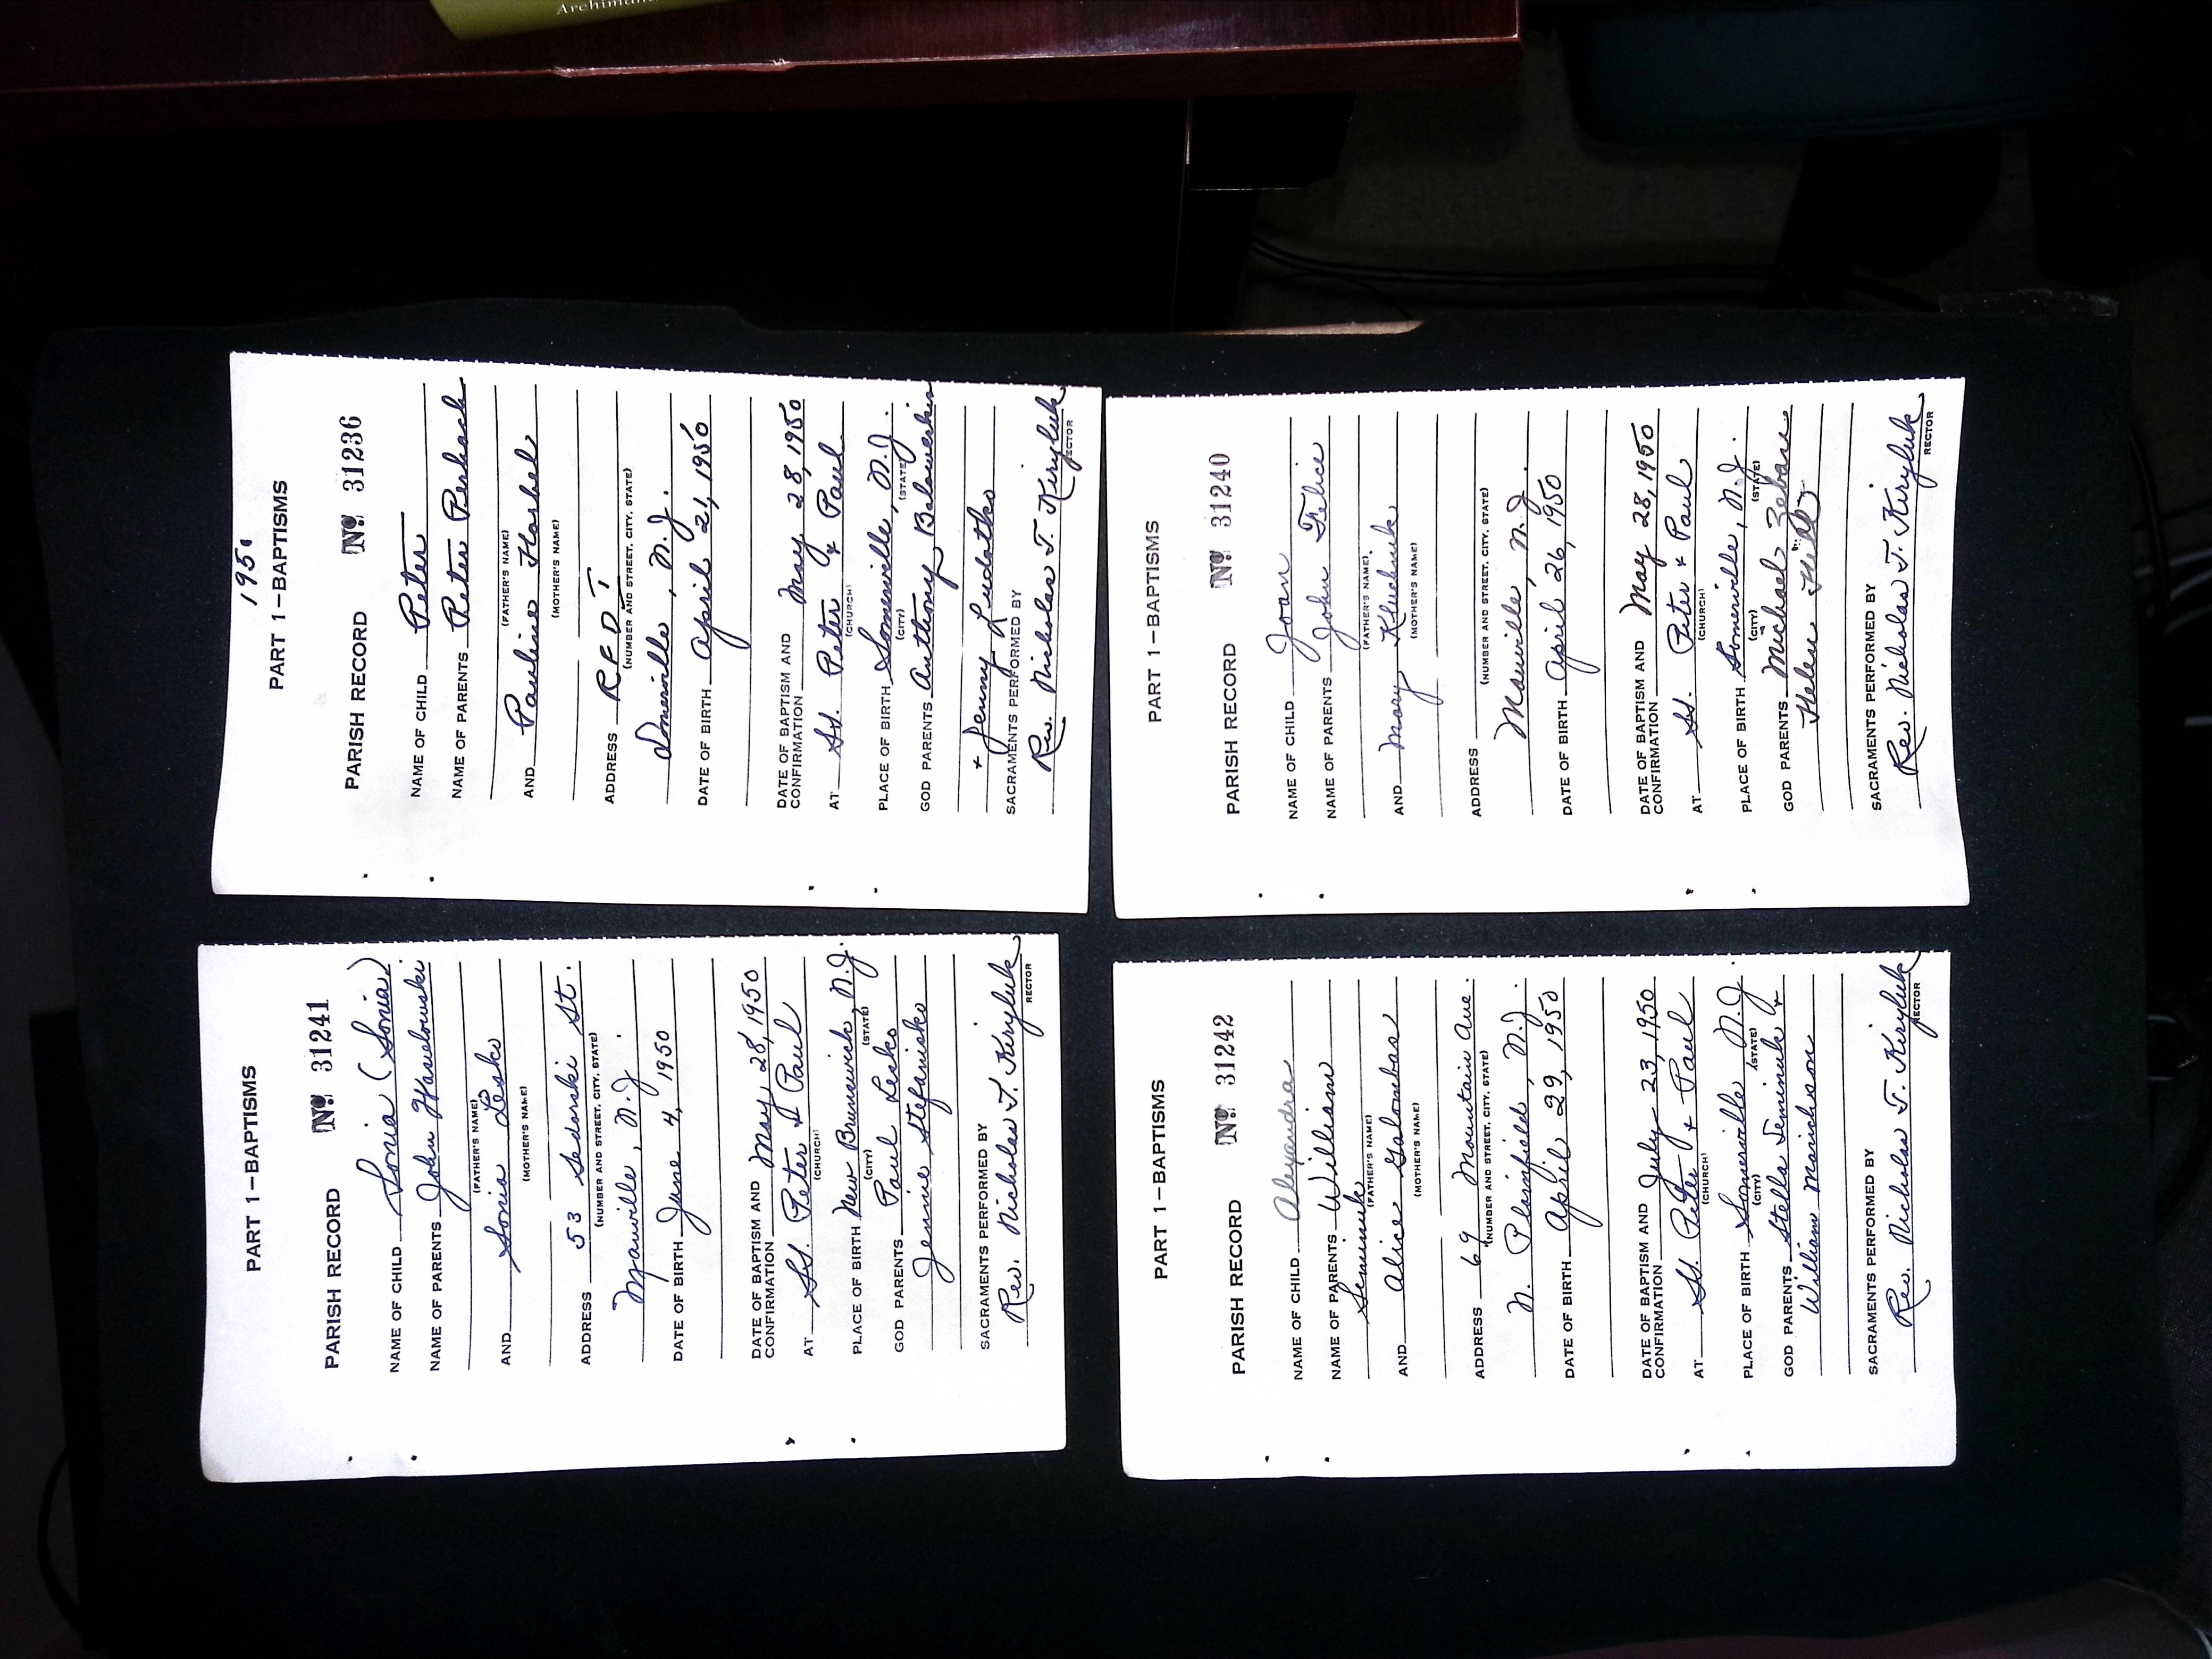 PART 1—BAPTISMS
PARISH RECORD Nº 31241
NAME OF CHILD Sonia (Sonia)
NAME OF PARENTS John
(FATHER'S NAME)
AND Sonia Lesko
(MOTHER'S NAME)
ADDRESS 53 Sedorski St.
(NUMBER AND STREET, CITY, STATE)
Manville, N.J.
DATE OF BIRTH June 4, 1950
DATE OF BAPTISM AND
CONFIRMATION May 28, 1950
AT SS. Peter & Paul
(CHURCH)
PLACE OF BIRTH New Brunswick, N.J.
(CITY) (STATE)
GOD PARENTS Paul Lesko
Jennie Stefanisko
SACRAMENTS PERFORMED BY
Rev. Nicholas T. Kiryluk
RECTOR
1950
PART 1—BAPTISMS
PARISH RECORD Nº 31236
NAME OF CHILD Peter
NAME OF PARENTS Peter Perhach
(FATHER'S NAME)
AND Pauline Horbel
(MOTHER'S NAME)
ADDRESS RFD I
(NUMBER AND STREET, CITY, STATE)
Somerville, N.J.
DATE OF BIRTH April 21, 1950
DATE OF BAPTISM AND
CONFIRMATION May 28, 1950
AT SS. Peter & Paul
(CHURCH)
PLACE OF BIRTH Somerville, N.J.
(CITY) (STATE)
GOD PARENTS Anthony
+ Jenny Ludatko
SACRAMENTS PERFORMED BY
Rev. Nicholas T. Kiryluk
RECTOR
PART 1—BAPTISMS
PARISH RECORD Nº 31242
NAME OF CHILD Alexandra
NAME OF PARENTS William
Seminuk
(FATHER'S NAME)
AND Alice Galombas
(MOTHER'S NAME)
ADDRESS 69 Mountain Ave.
(NUMBER AND STREET, CITY, STATE)
N. Plainfield, N.J.
DATE OF BIRTH April 29, 1950
DATE OF BAPTISM AND
CONFIRMATION July 23, 1950
AT SS. Peter + Paul
(CHURCH)
PLACE OF BIRTH Somerville, N.J.
(CITY) (STATE)
GOD PARENTS Stella Seminuk +
William Marichson
SACRAMENTS PERFORMED BY
Rev. Nicholas T. Kiryluk
RECTOR
PART 1—BAPTISMS
PARISH RECORD Nº 31240
NAME OF CHILD Joan
NAME OF PARENTS John Felice
(FATHER'S NAME)
AND Mary Kluchnik
(MOTHER'S NAME)
ADDRESS
(NUMBER AND STREET, CITY, STATE)
Manville, N.J.
DATE OF BIRTH April 26, 1950
DATE OF BAPTISM AND
CONFIRMATION May 28, 1950
AT SS. Peter + Paul
(CHURCH)
PLACE OF BIRTH Somerville, N.J.
(CITY) (STATE)
GOD PARENTS Michael
Helen
SACRAMENTS PERFORMED BY
Rev. Nicholas T. Kiryluk
RECTOR